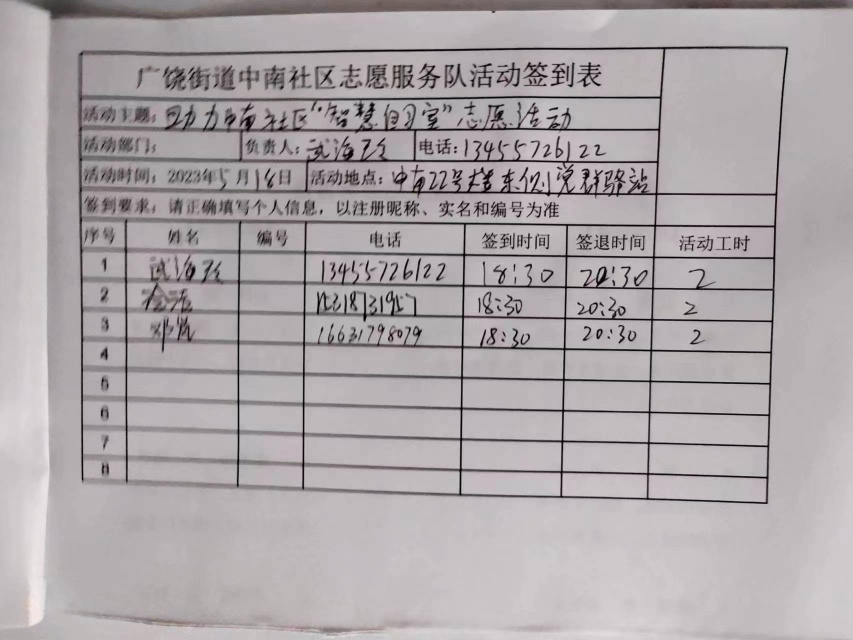 广饶街道中南社区志愿服务队活动签到表
活动主题：助力中南社区“智慧自习室”志愿活动
活动部门： 负责人：武海 电话：13455726122
活动时间：2023年5月18日 活动地点：中南22号楼东侧党群驿站
签到要求：请正确填写个人信息，以注册昵称、实名和编号为准
序号 姓名 编号 电话 签到时间 签退时间 活动工时
1 武海 13455726122 18:30 20:30 2
2 18:30 20:30 2
3 邓 16631798079 18:30 20:30 2
4
5
6
7
8